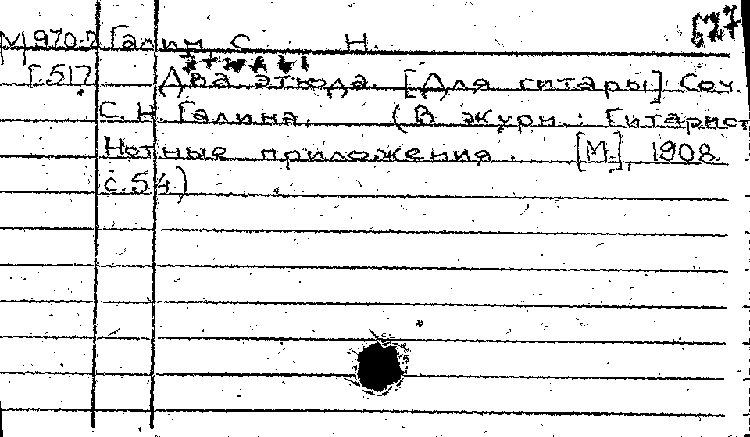 М 970.2 Галин, С. Н.
Г.517 Два этюда. [Для гитары]. Соч.
С. Н. Галина. (В журн.: Гитарист
Нотные приложения. [М.], 1908
с.54)